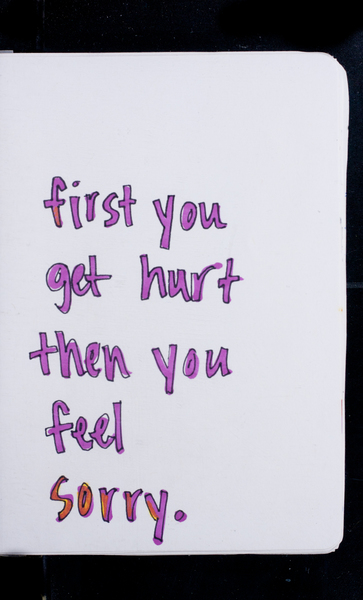 first you
get hurt
then you
feel
sorry.